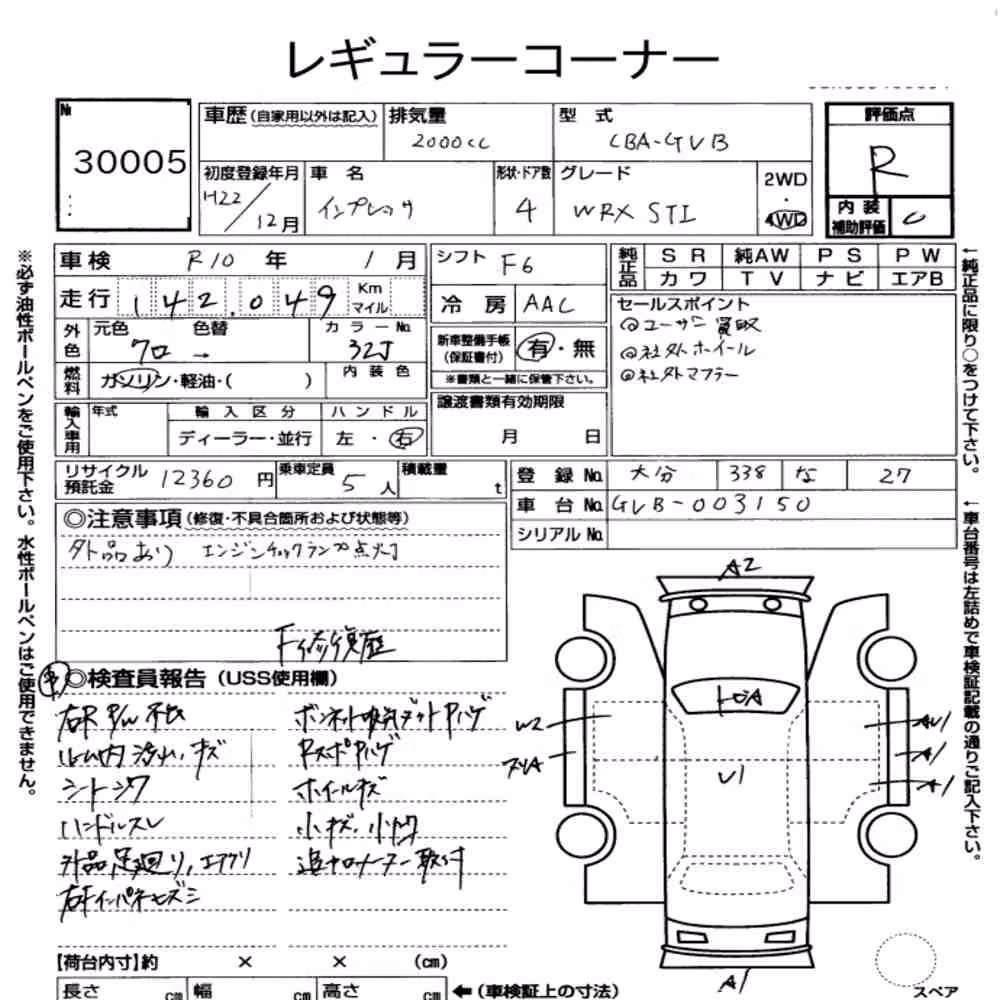 レギュラーコーナー
№ 30005
車歴(自家用以外は記入) 排気量 2000cc 型 式 CBA-GVB
評価点 R
初度登録年月 H22/12月 車 名 インプレッサ 形状・ドア数 4 グレード WRX STI 2WD・4WD
内装補助評価 C
車 検 R10 年 1 月 シフト F6
純正品 S R 純AW P S P W
カワ T V ナビ エアB
走行 142,049 Km マイル 冷 房 AAC
セールスポイント
@ユーザー買取
@社外ホイール
@社外マフラー
外色 元色 クロ 色替 → カラーNo. 32J
新車整備手帳(保証書付) 有・無
※書類と一緒に保管下さい。
燃料 ガソリン・軽油・( ) 内 装 色
譲渡書類有効期限
月 日
輸入車用 年式 輸 入 区 分 ハ ン ド ル
ディーラー・並行 左・右
リサイクル預託金 12360 円 乗車定員 5 人 積載量 t
登 録 No. 大分 338 な 27
車 台 No. GVB-003150
シリアル No.
◎注意事項(修復・不具合箇所および状態等)
外品あり エンジンチェックランプ点灯
F修復歴
◎検査員報告(USS使用欄)
右R P/W 不良
ルーム内汚れ、キズ
シートシワ
ハンドルスレ
外品、足廻り、エアクリ
ボンネット吸気ダクトハゲ
Rスポハゲ
ホイールキズ
小キズ、小凹
追加メーター取付
A2
W2
A1
A1
U1
A1
【荷台内寸】約 × × (cm)
長さ cm 幅 cm 高さ cm ←(車検証上の寸法)
スペア
※必ず油性ボールペンをご使用下さい。水性ボールペンはご使用できません。
←純正品に限り○をつけて下さい。
←車台番号は左詰めで車検証記載の通りご記入下さい。